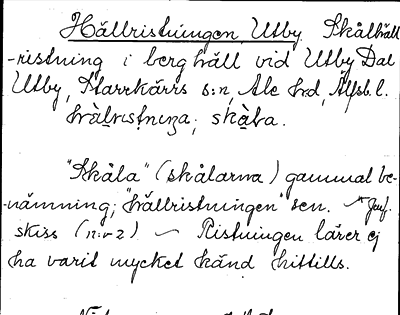 Hällristningen Utby. Skålhäll
-ristning i berghäll vid Utby Dal
Utby, Starrkärrs s:n, Ale hd, Älfsb. l.
hälristniŋa; skåla.
"Skåla" (skålarna) gammal be-
-nämning; "hällristningen" sen. Jmf.
skiss (n:r 2) – Ristningen lärer ej
ha varit mycket känd hittills.